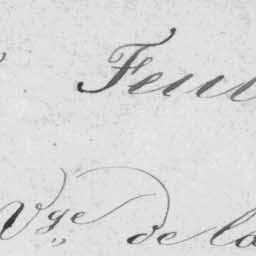 Feui
Vge de la